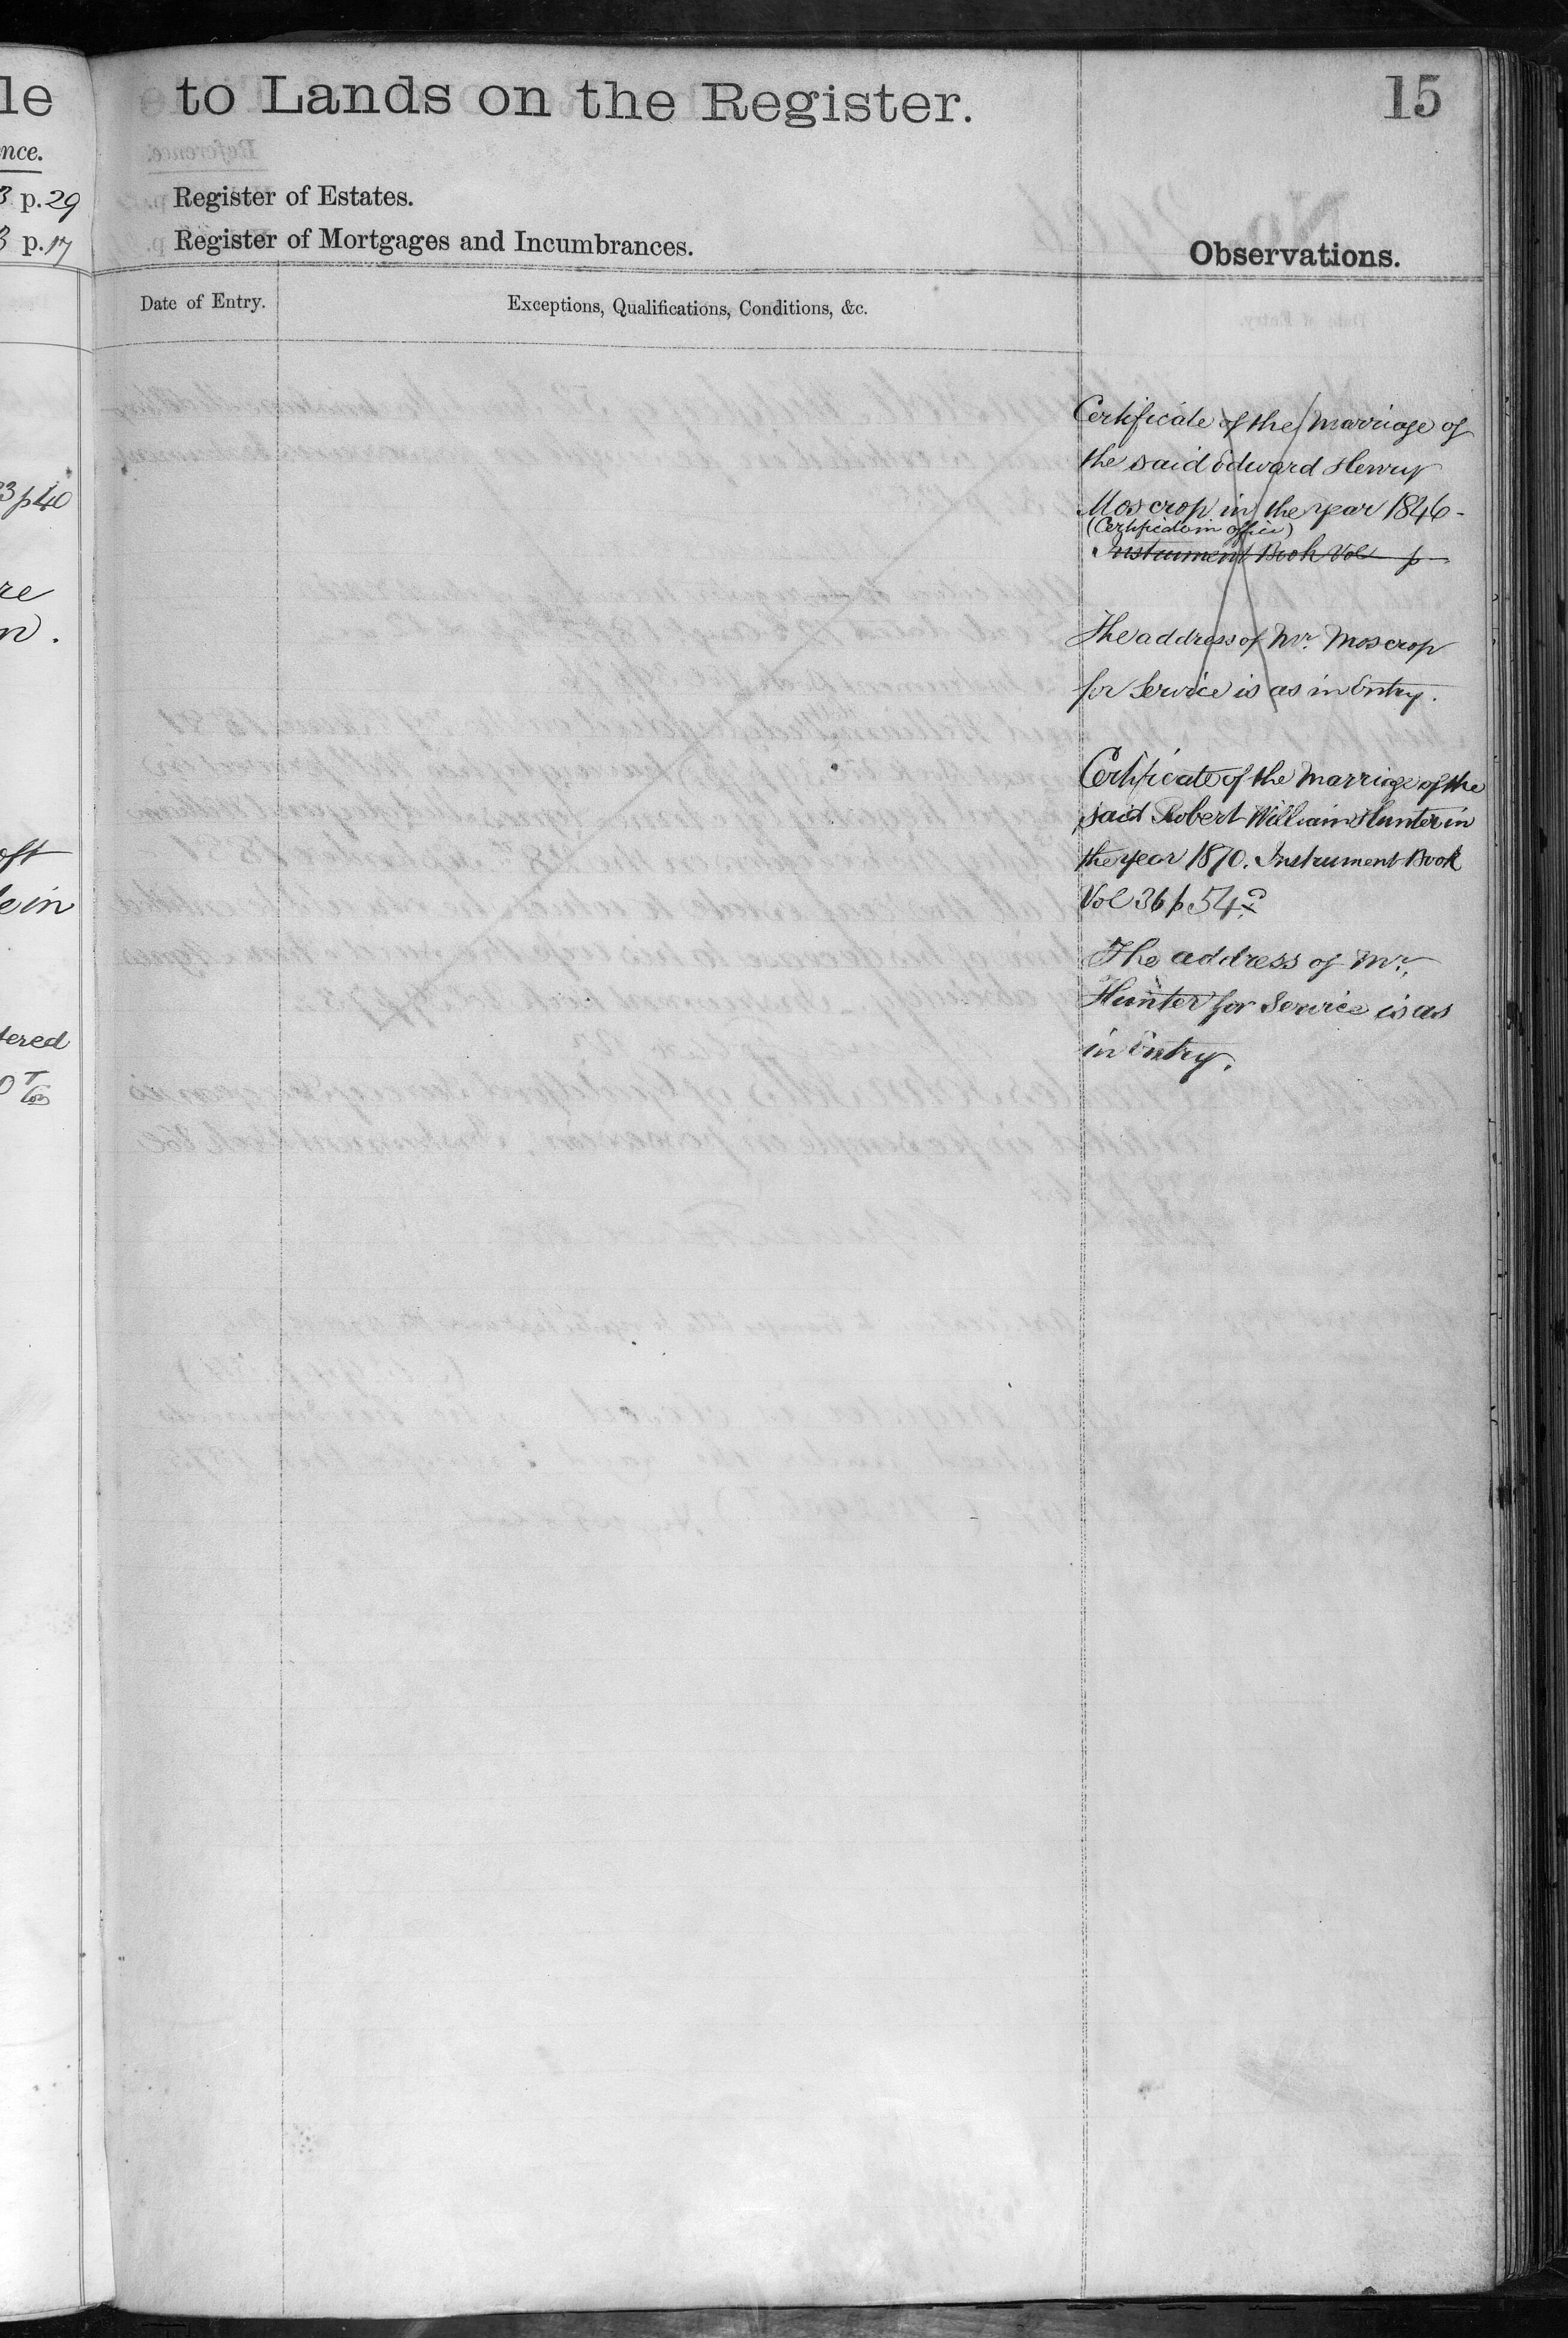 le
nce.
3 p.29
3 p.17
3 p 40
re
n.
oft
lein
tered
to Lands on the Register.
15
Register of Estates.
Register of Mortgages and Incumbrances.
Observations.
Date of Entry.
Exceptions, Qualifications, Conditions, &c.
Certificate of the Marriage of
the said Edward Henry
Moscrop in the year 1846-
(Certificate in office)
Instrument Book Vol p
The address of Mr. Moscrop
for Service is as in Entry.
Certificate of the Marriage of the
said Robert William Hunter in
the year 1870. Instrument Book
Vol 36 p 54
The address of Mr.
Hunter for Service is as
in Entry.